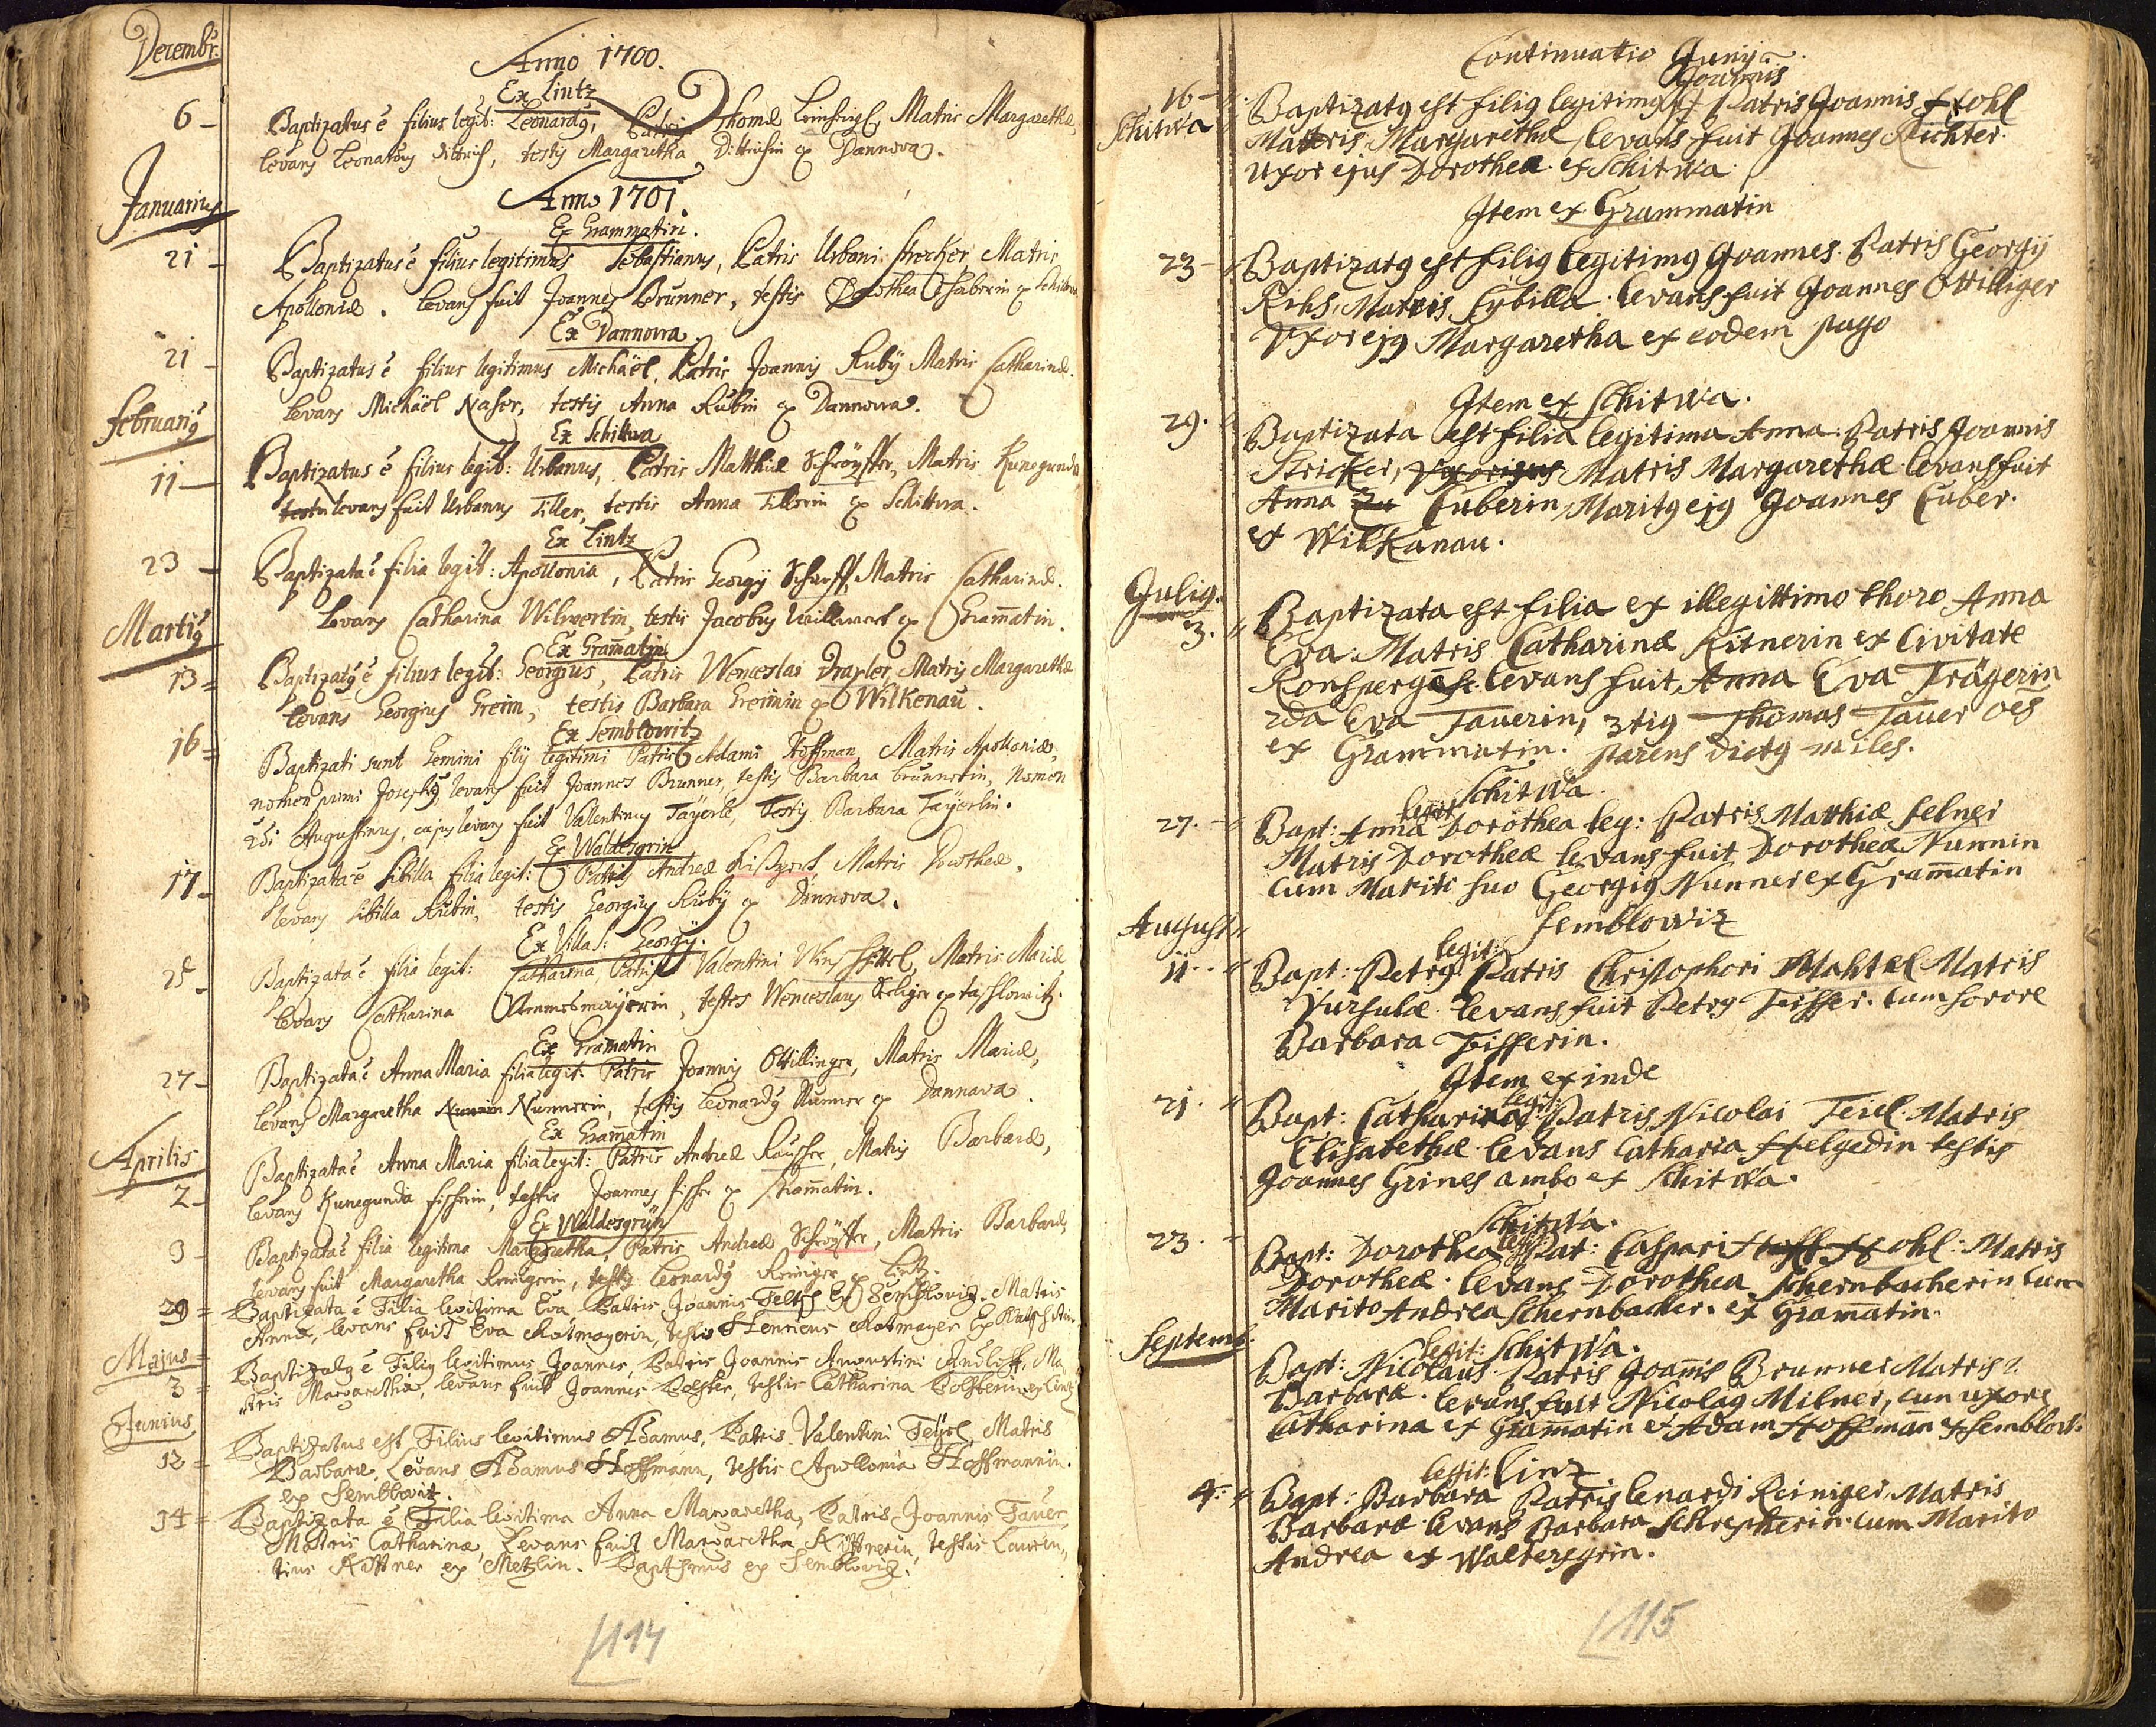 Decembr:
Anno 1700.
Ex Lintz
6 - Baptizatus ē filius legit: Leonardq, Patris Thomæ Matris Margarethæ,
levans Leonardus Dittrich, testis Margaretha Dittrichin ex Dannova.
Januarius
Anno 1701.
Ex Grammatin.
21 - Baptizatus ē filius legitimus Sebastianus, Patris Urbani Strecker Matris
Apolloniæ. levans fuit Joannes Brunner, testis Dorothea ex Schittwa
Ex Dannowa
21 - Baptizatus ē filius legitimus Michäel, Patris Joannis Ruby Matris Catharinæ.
levans Michäel Naser, testis Anna Rubin ex Dannowa.
Februariq
Ex Schittwa
11 - Baptizatus ē filius legit: Urbanus, Patris Matthiæ Schröpffer, Matris Kunegundæ
testis levans fuit Urbanus Tiller, testis Anna Tillerin ex Schittwa.
Ex Lintz
23 - Baptizata ē filia legit: Apollonia, Patris Georgij Scharff, Matris Catharinæ.
levans Catharina Wilwertin, testis Jacobus Willwert ex Gram̄atin.
Martiq
Ex Gram̄atin
13 = Baptizatq ē filius legit: Georgius, Patris Wenceslai Draxler, Matris Margarethæ
levans Georgius Greim, testis Barbara Greimin ex Wilkenau.
Ex Semblowitz
16 = Baptizati sunt Gemini filij legitimi Patris Adami Hoffman, Matris Apolloniæ,
nomen primi Josephq, levans fuit Joannes Brunner, testis Barbara Brunnerin, Nomen
2di Augustinus, cujus levans fuit Valentinus Tayerle, Testis Barbara Tayerlin.
Ex Waldesgrin
17 - Baptizata ē Sibilla filia legit: Patris Andreæ Matris Dorotheæ,
levans Sibilla Rubin, testis Georgius Ruby ex Dannova.
Ex Villa S: Georgij.
25 - Baptizata ē filia legit: Catharina, Patris Valentini Matris Mariæ
levans Catharina testes Wenceslaus
Ex Gram̄atin
27 - Baptizata ē Anna Maria filia legit: Patris Joannis Ottillinger, Matris Mariæ,
levans Margaretha Nunnerin, testis Leonardq Nunner ex Dannava.
Aprilis
Ex Gram̄atin
2 - Baptizata ē Anna Maria filia legit: Patris Andreæ Rauscher, Matris Barbaræ,
levans Kunegunda fischerin, testis Joannes fischer ex Gram̄atin.
Ex Waldesgrün
9 - Baptizata ē filia legitima Margaretha, Patris Andreæ Schröpffer, Matris Barbaræ,
levans fuit Margaretha Reinigerin, testis Leonardq Reiniger ex Lintz.
29 = Baptizata ē Filia legitima Eva Patris Joannis Feltzl Ex Semblovitz. Matris
Annæ, levans fuit Eva Rotmayerin, testis Henricus Rotmayer Ex
Majus =
3 = Baptizatq ē Filiq legitimus Joannes, Patris Joannis Augustini Ma
tris Margarethæ, levans fuit Joannes Polster, testis Catharina Polsterin ex Lintz
Junius
12 = Baptizatus est Filius legitimus Adamus, Patris Valentini Teyrl Matris
Barbaræ, Levans Adamus Hoffmann, testis Apollonia Hoffmannin.
ex Semblovitz.
14 = Baptizata ē Filia legitima Anna Margaretha, Patris Joannis Tauer
Matris Catharinæ, Levans fuit Margaretha Kittnerin, testis Lauren,,
tius Kittner ex Metzlin. Baptismus ex Semblovitz.
114
Continuatio Junij
Joannis
16 - Baptizatq est filiq legitimq Patris Joannis Hohl
Schitwa Matris Margarethæ, levans fuit Joannes Richter.
uxor ejus Dorothea ex Schitwa
Item ex Grammatin
23 - Baptizatq est filiq legitimq Joannes. Patris Georgij
Rihs, Matris Sybilla. levans fuit Joannes Ottilliger
Vxor ejq Margaretha ex eodem pago
Item ex Schitwa.
29. Baptizata est filia legitima Anna. Patris Joannis
Stricker, Matris Margarethæ levans fuit
Anna Cuberin, Maritq ejq Joannes Cuber.
ex Wilkanau.
Juliq.
3. Baptizata est filia ex illegittimo thoro Anna
Eva. Matris Catharinæ Kitnerin ex Civitate
Ronsperg levans fuit, Anna Eva Trägerin
2da Eva Tauerin, 3tiq Thomas Tauer oēs
ex Grammatin. parens dictq miles.
Schitwa.
legit
27. Bapt: Anna Dorothea leg: Patris Matthiæ felner
Matris Dorotheæ levans fuit Dorothea Nunnin
cum Marito suo Georgiq Nunner ex Gram̄atin
August
Semblowiz
legit:
11. Bapt: Petrq Patris Christophori Mahtel Matris
Vursulæ. levans fuit Petrq Fisser. cum sorore
Barbara Fisserin.
Item exinde
legit:
21. Bapt: Catharina Patris Nicolai Teiel. Matris
Elisabethæ. levans Catharia Helgedin testis
Joannes Grines ambo ex Schitwa.
Schitwa.
legit
23. Bapt: Dorothea Pat: Caspari Hohl: Matris
Dorotheæ. levans Dorothea Schernbacherin cum
Marito Andrea Schernbacher. ex Gram̄atin.
Septemb.
legit: Schitwa.
Bapt: Nicolaus Patris Joan̄is Brunner Matris
Barbaræ. levans fuit Nicolaq Milner, cum uxore
Catharina ex Gram̄atin et Adam Hoffman ex Semblowi:
legit: Linz
4. Bapt: Barbara Patris Lenardi Reiniger, Matris
Barbaræ. levans Barbara Schrepferin. cum Marito
Andrea ex Waltersgrin.
115